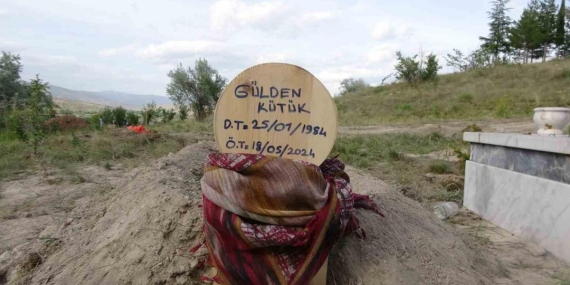 GÜLDEN
KÜTÜK
D.T: 25/01/1984
Ö.T: 18/05/2024